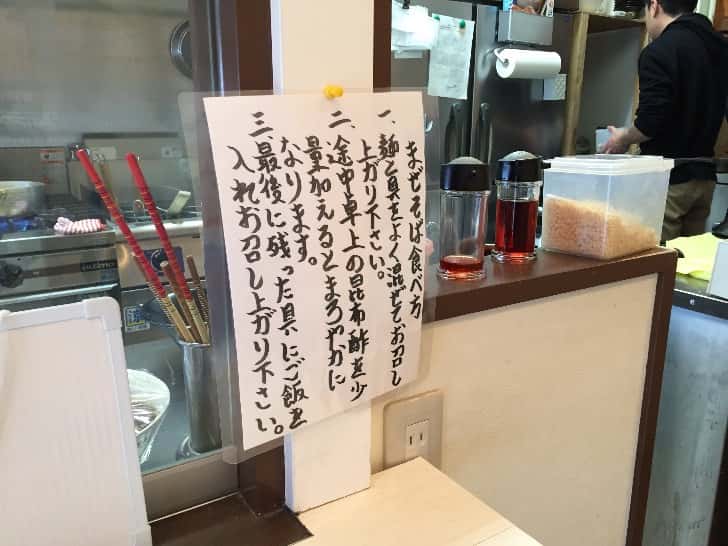 まぜそば食べ方
一、麺と具をよく混ぜてお召し
上がり下さい。
二、途中卓上の昆布酢を少
量加えるとまろやかに
なります。
三、最後に残った具にご飯を
入れお召し上がり下さい。